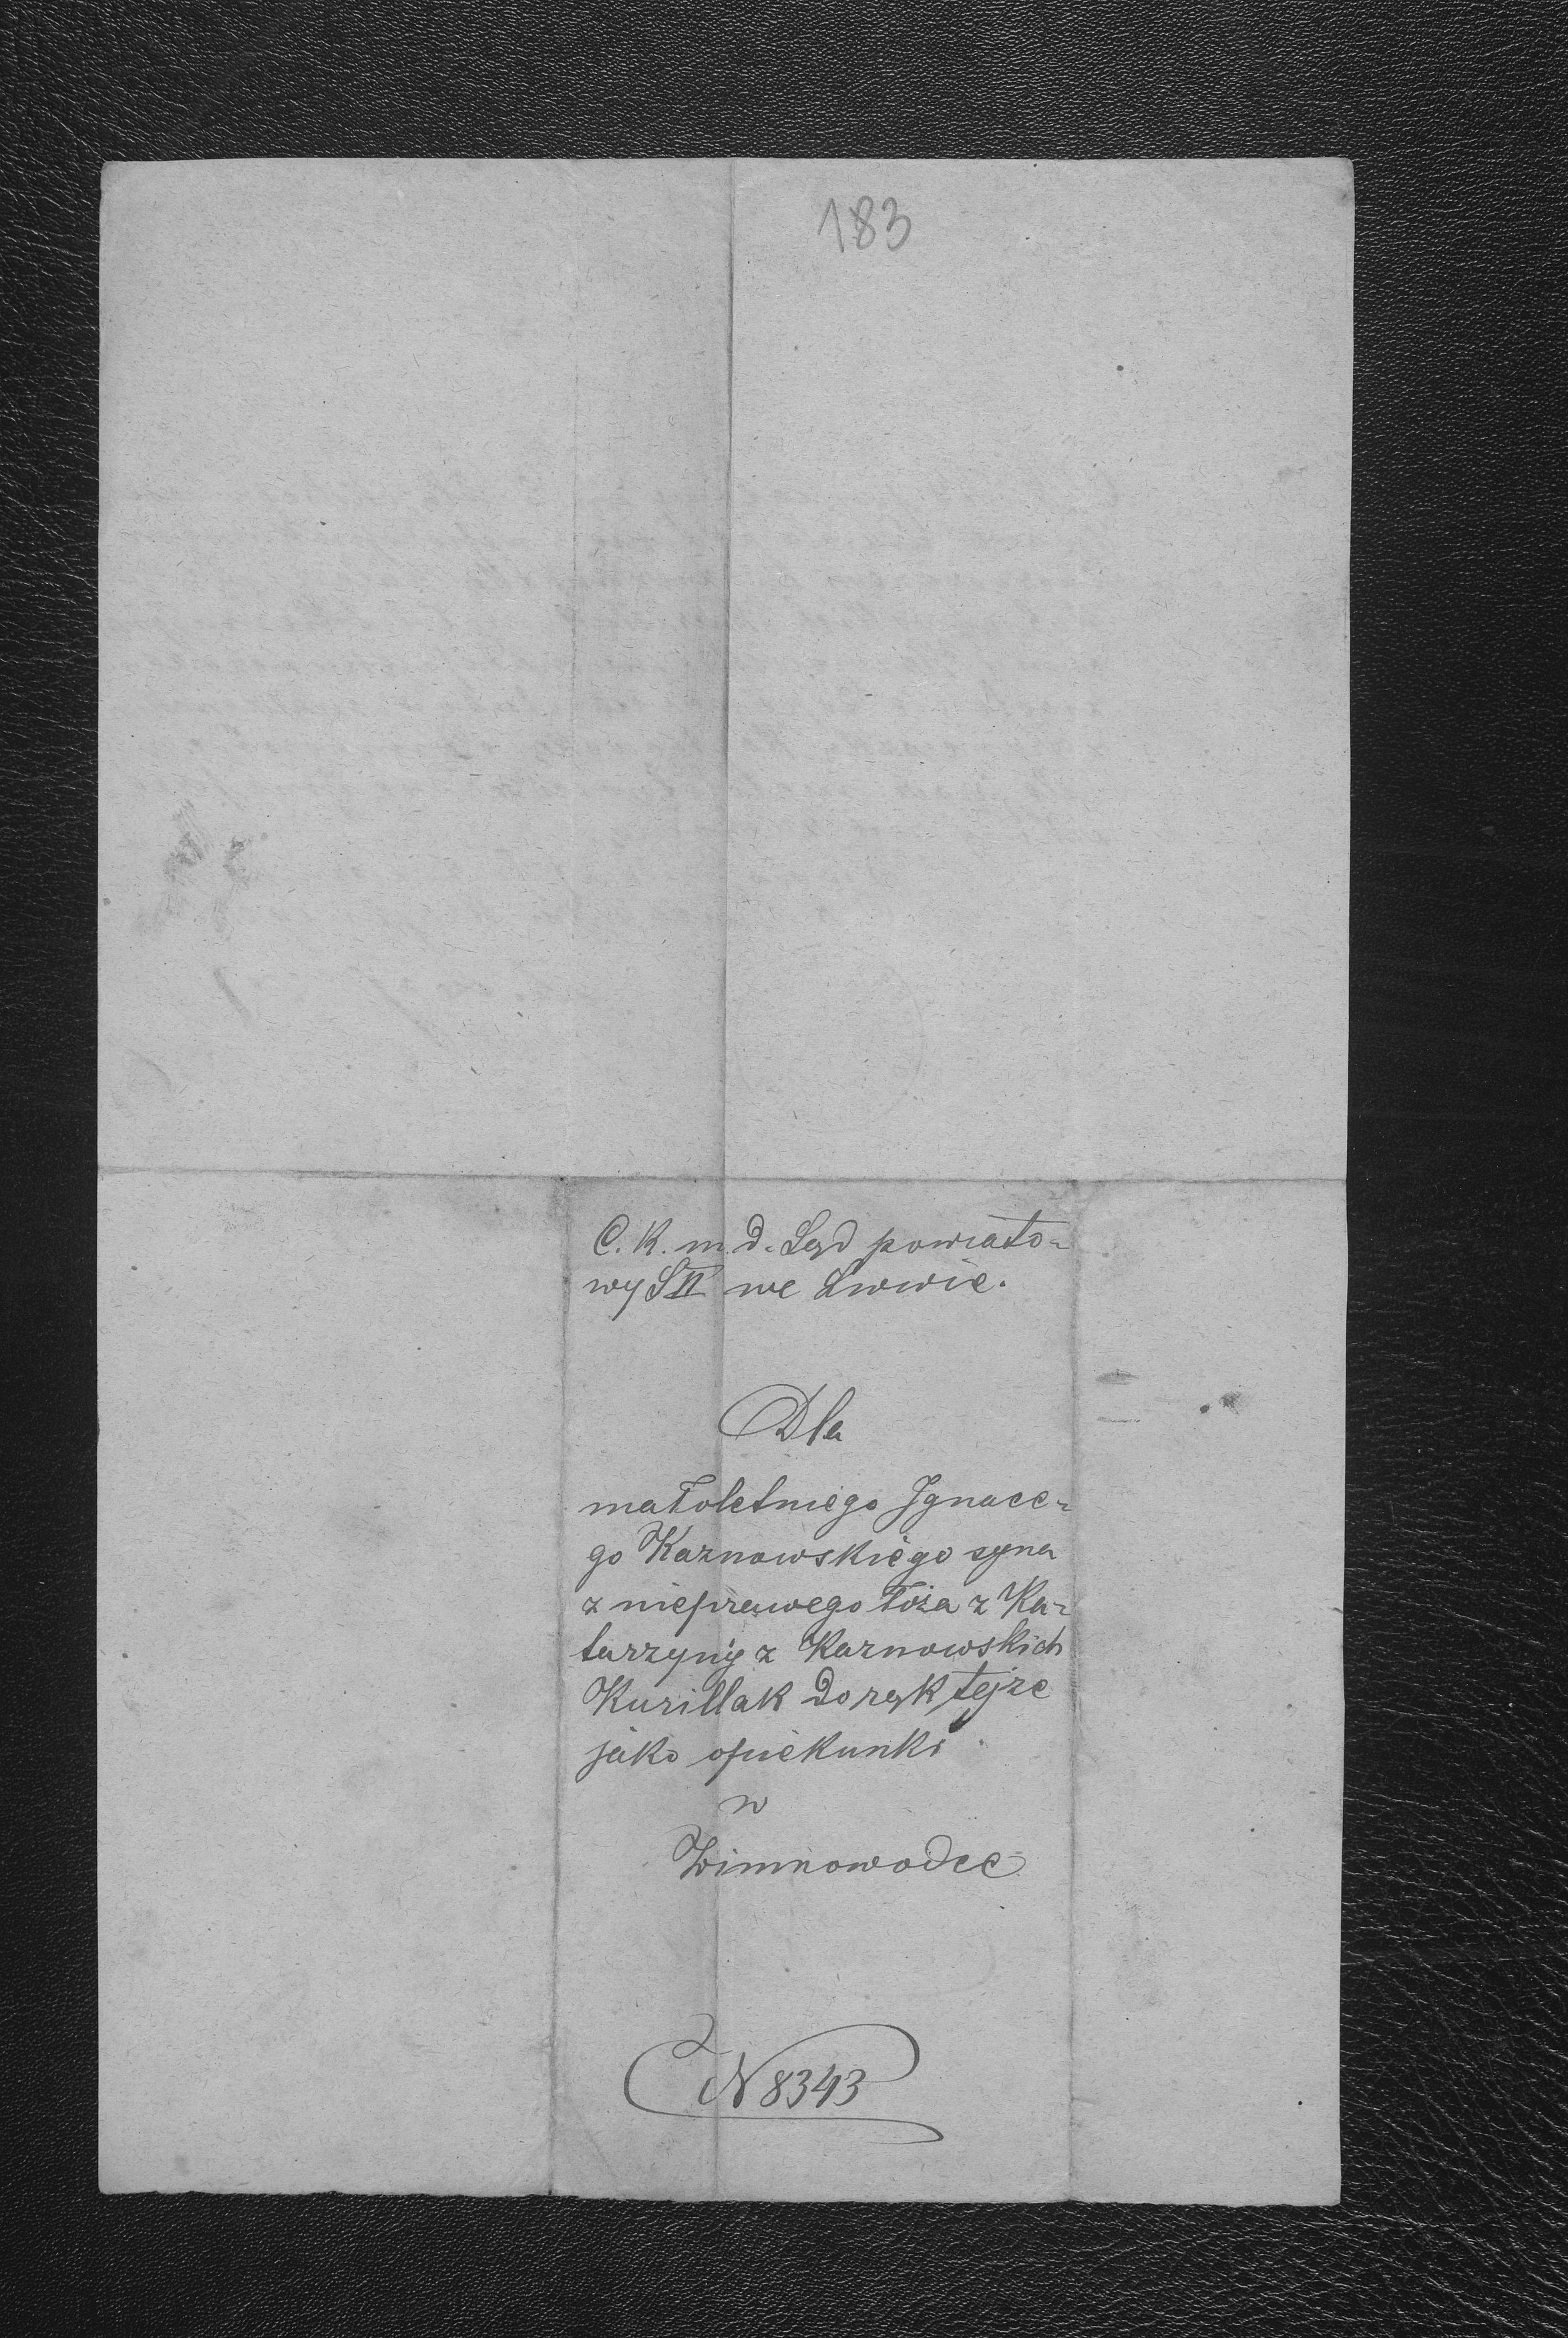 183
C. K. m. d. Sąd powiato-
wy S II we Lwowie.
Dla
małoletniego Ignace-
go Karnowskiego syna
z nieprawego łoża z Ka-
tarzyny z Karnowskich
Kurillak do rąk tejże
jako opiekunki
w
Zimnowodce
N 8343